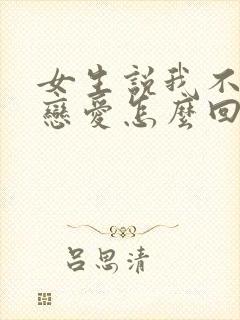 女生說我不
戀愛怎麼回
呂思清